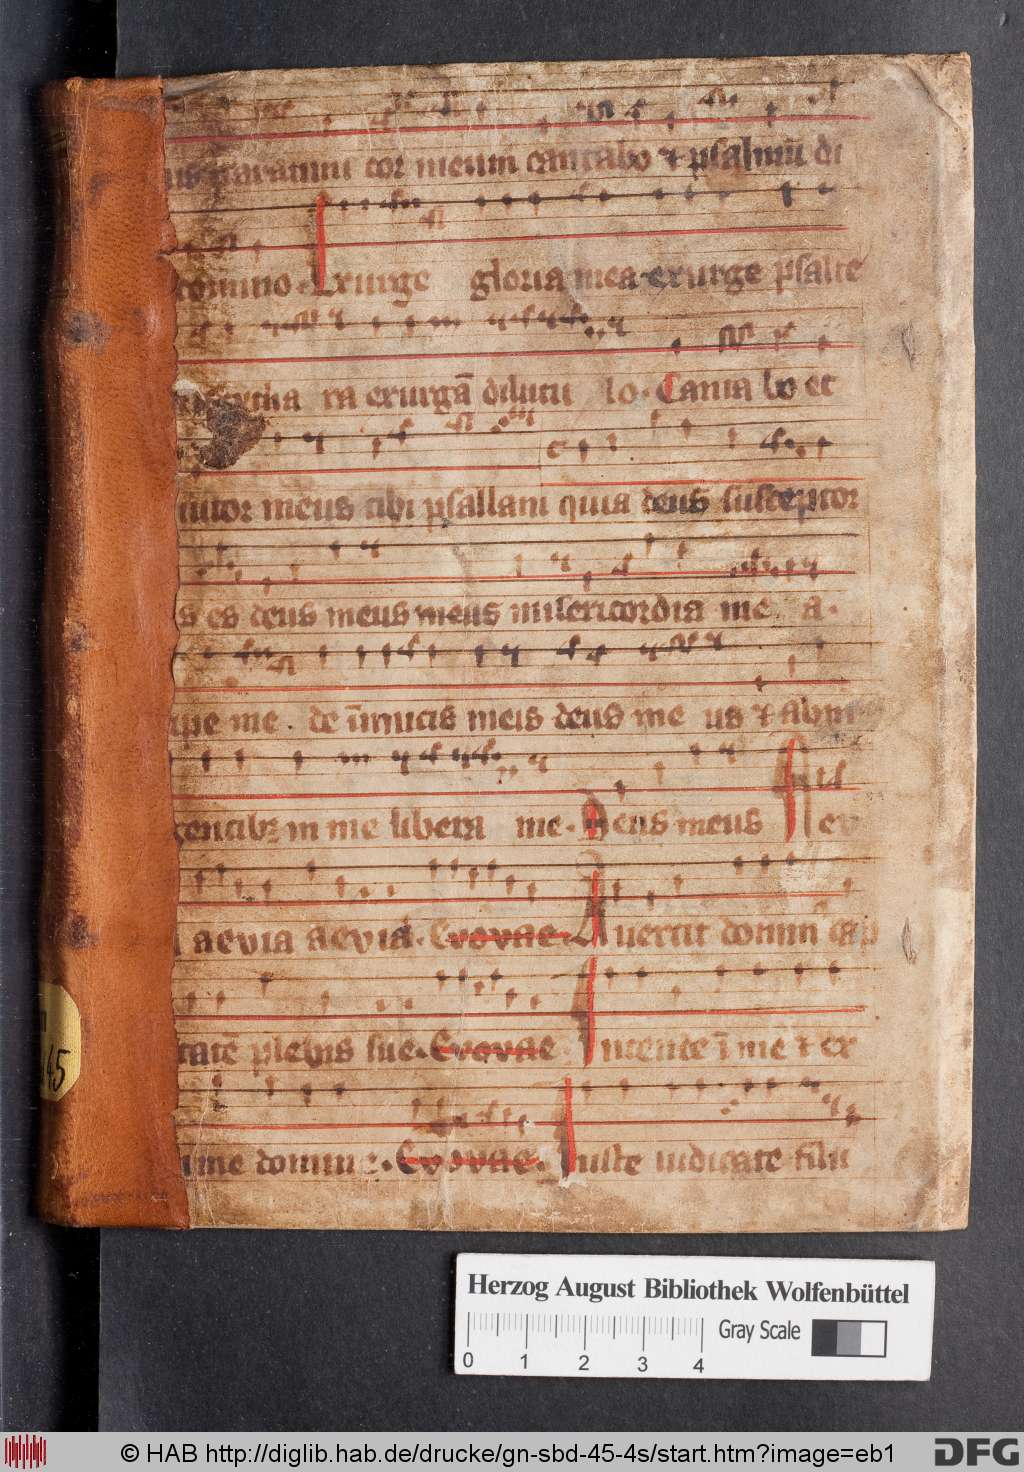 cor meum cantabo & psalmū di
domino. Exurge gloria mea exurge psalte
cytha ra exurgā dilucu lo. Canta bo et
iutor meus tibi psallam quia deus susceptor
s es deus meus meus misericordia me a.
ipe me. de inimicis meis deus me us & ab in
gentibz in me libera me. Deus meus A ev
aevia aevia. Evovae. Avertit domin cap
tatē plebis sue. Evovae. Intente ī me & ex
i me domine. Evovae. Iuste iudicate filii
45
Herzog August Bibliothek Wolfenbüttel
Gray Scale
0 1 2 3 4
© HAB http://diglib.hab.de/drucke/gn-sbd-45-4s/start.htm?image=eb1
DFG